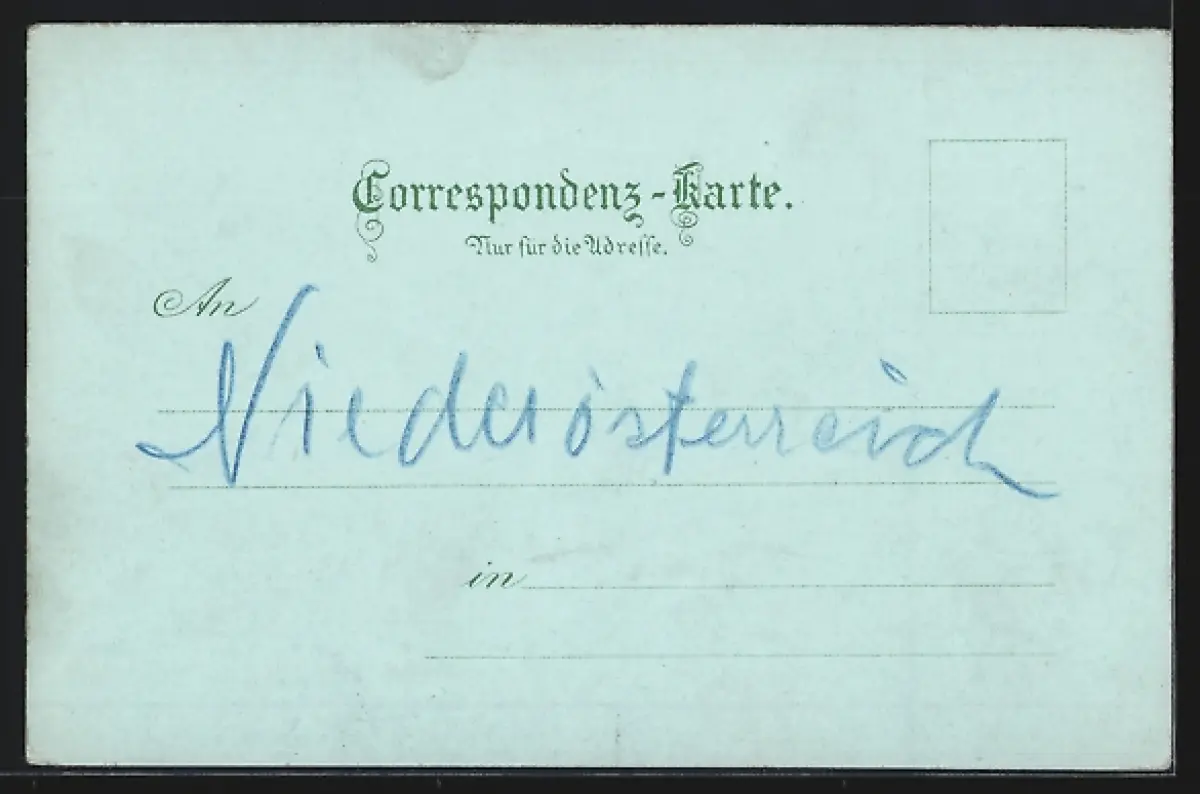 Correspondenz-Karte.
Nur für die Adresse.
An
Niederösterreich
in